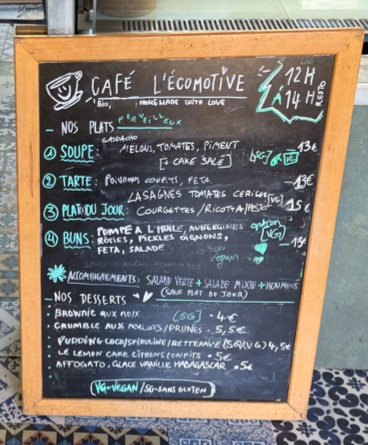 CAFÉ L'ÉCOMOTIVE
BIO, HOMEMADE WITH LOVE
12H
À 14H RESTO
NOS PLATS MERVEILLEUX
GASPACHO
① SOUPE: MELONS, TOMATES, PIMENT 13€
[+ CAKE SALÉ] [VG]
② TARTE: POIVRONS CONFITS, FETA 13€
LASAGNES TOMATES CERISES [VG]
③ PLAT DU JOUR: COURGETTES/RICOTTA/PESTO 15€
④ BUNS: POMPE À L'HUILE, AUBERGINES option
RÔTIES, PICKLES OIGNONS, [VG]
FETA, SALADE
Vegan
ACCOMPAGNEMENTS: SALADE VERTE + SALADE MIXTE + HOUMOUS
(SAUF PLAT DU JOUR)
NOS DESSERTS
BROWNIE AUX NOIX [SG] 4€
CRUMBLE AUX ABRICOTS/PRUNES 5,5€
PUDDING COCO/SPIRULINE/BETTERAVE (SG)(VG) 4,5€
LE LEMON CAKE CITRONS CONFITS 5€
AFFOGATO, GLACE VANILLE MADAGASCAR 5€
(VG=VEGAN/SG=SANS GLUTEN)